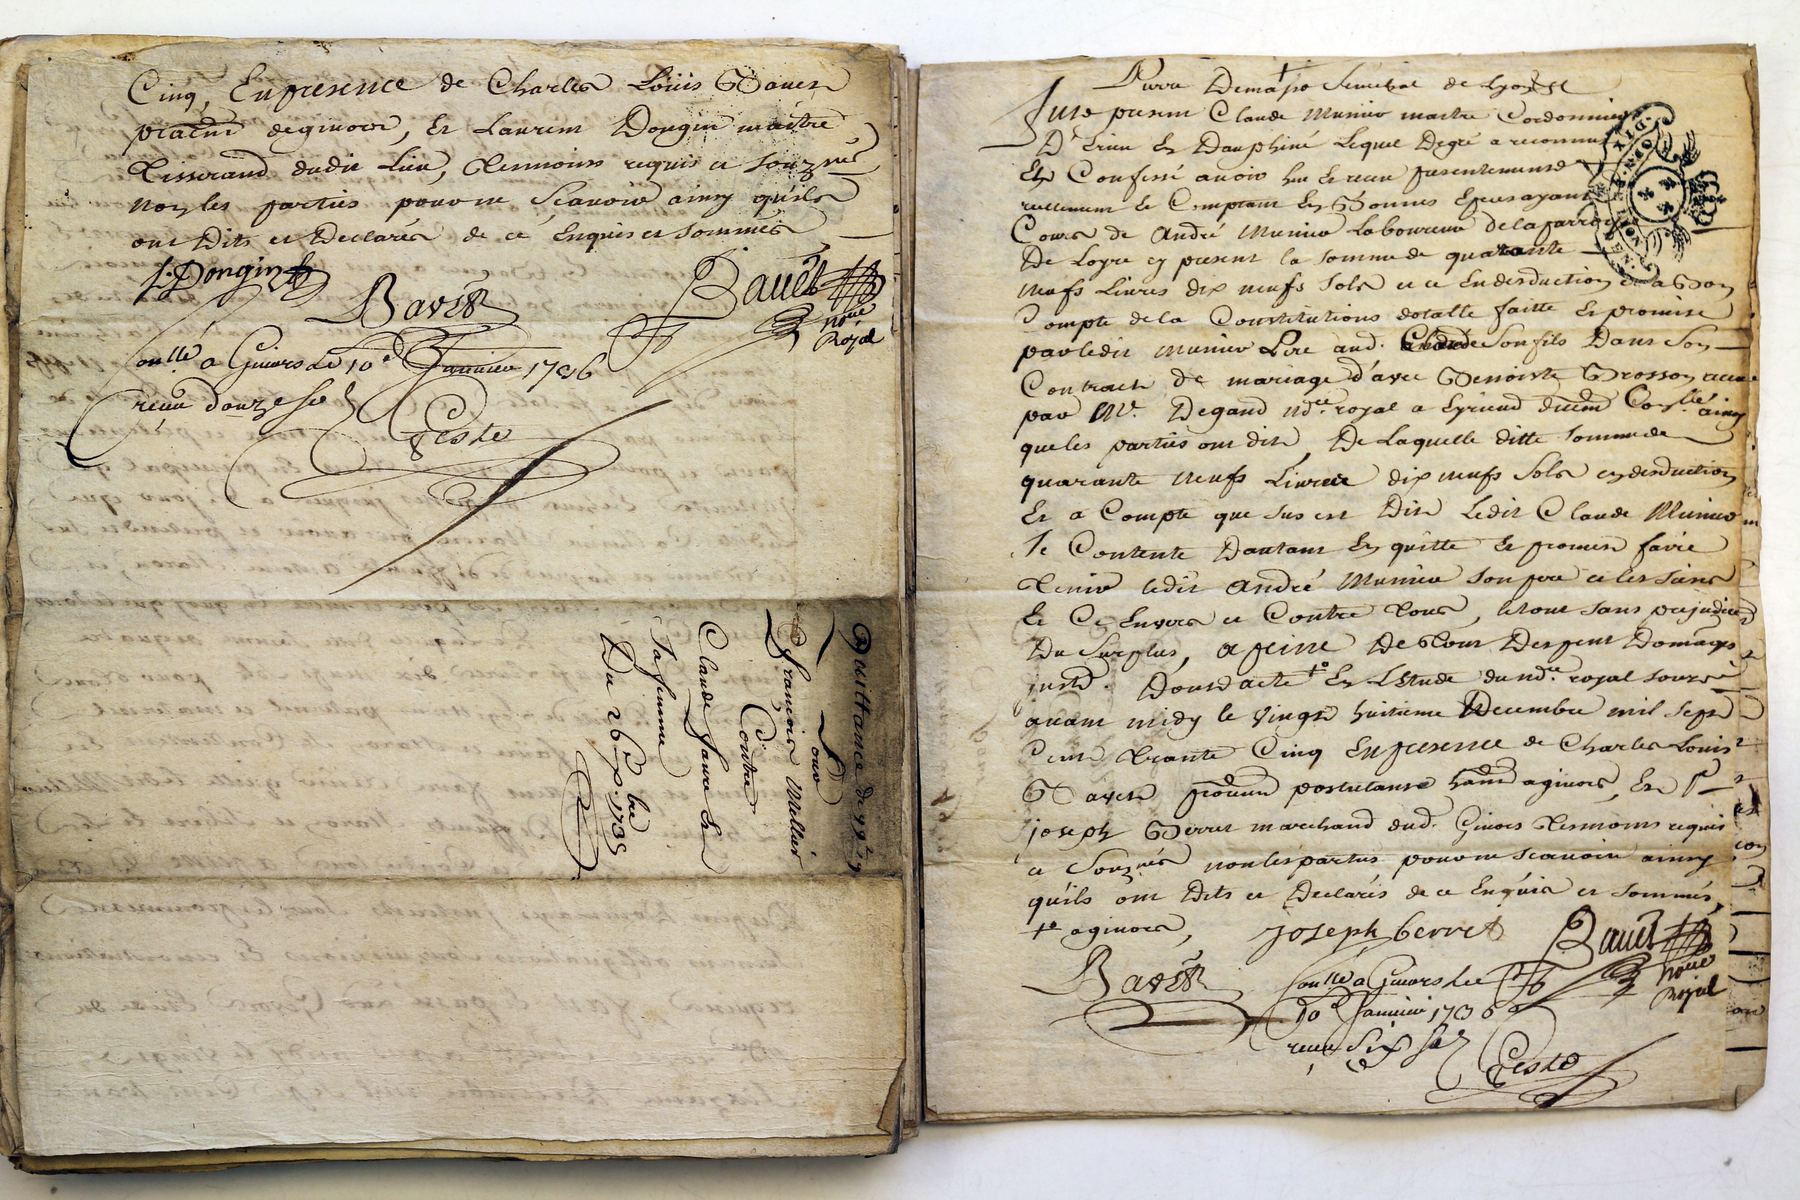 Cinq, En presence de Charles Loüis Bavet
praticien de givors, et Laurent Dongin maistre
Tisserand dudit Lieu, Tesmoins requis et souz.nés
non les parties pour ne Scavoir ainsy qu'ils
ont Dits et Declarés de ce Enquis et sommés
L. Dongin
Bavet
Bavet
no.re Royal
Con.llé a Givors Le 10e Janvier 1736
receu douze sols
Teste
Quittance de
Pour
François Mellier
Contre
Claude Faure et
Sa femme
Du 26 x.bre 1735
Jure
Fut present Claude Munier maitre Cordonnier
D'Erieu En Dauphiné Lequel Degré a reconnu
Et Confessé avoir heu et receu presentement
reellement et Comptant En Bonnes Especes ayant
Cours de André Munier Laboureur de la parroisse
De Loyre cy present la somme de quarante
neufs Livres dix neufs Sols et ce En desduction et a Bon
Compte de la Constitutions dotalle faitte Et promise
par ledit Munier Pere aud. Claude Son fils Dans Son
Contract de mariage d'avec Benoiste Grosson receu
par Me. Degaud no.re royal a Eyrieud ainsy
que les parties ont dit, De Laquelle ditte somme de
quarante neufs Livres dix neufs Sols en desduction
Et a Compte que sus est Dit Ledit Claude Munier
Se Contente Dautant En quitte Et promet faire
Tenir ledit André Munier Son pere et les siens
Et Ce Envers et Contre Tous, le tout sans prejudice
Du Surplus, a peine De Tous Despens Domages
Dont acte En L'Estude du no.re royal sous.né
avant midy le vingt huitieme Decembre mil sept
Cent Trante Cinq En presence de Charles Louis
Bavet postulant aud. givors, Et Sr
joseph Berret marchand aud. Givors Tesmoins requis
et Souz.nés non les parties pour ne Scavoir ainsy
qu'ils ont Dits et Declarés de ce Enquis et sommés,
a givors,
Joseph berret
Bavet
no.re Royal
Bavet
Con.llé a Givors Le
10e Janvier 1736
receu Six sols
Teste
DIX DEN.
LYON